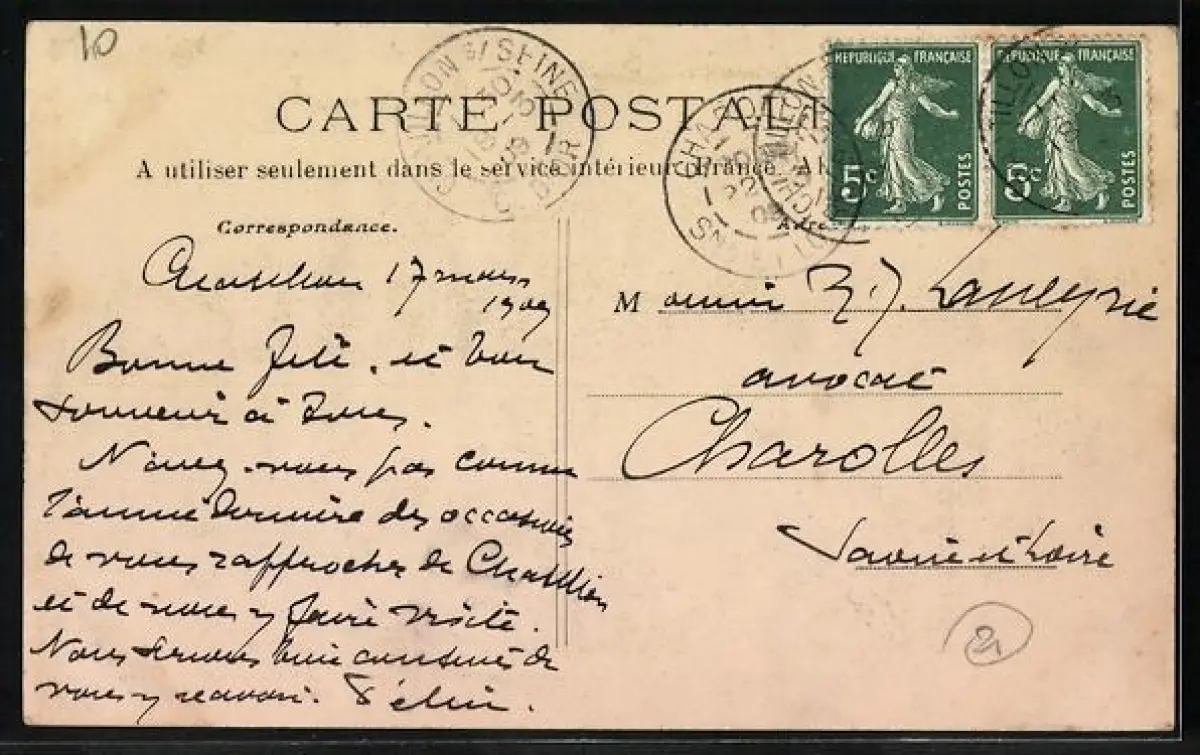 10
CARTE POSTALE
A utiliser seulement dans le service intérieur (France, Al
CHATILLON S/ SEINE
COTE D'OR
CHAROLLES
RÉPUBLIQUE FRANÇAISE
5c POSTES
RÉPUBLIQUE FRANÇAISE
5c POSTES
Correspondance.
Adresse
Chatillon 17 mars
1909
Bonne fête, et bon
souvenir à tous.
N'aurez-vous pas comme
l'année dernière des occasions
de vous rapprocher de Chatillon
et de nous y faire visite.
Nous serions bien contents de
vous y revoir.
Monsieur
avocat
Charolles
Saône et Loire